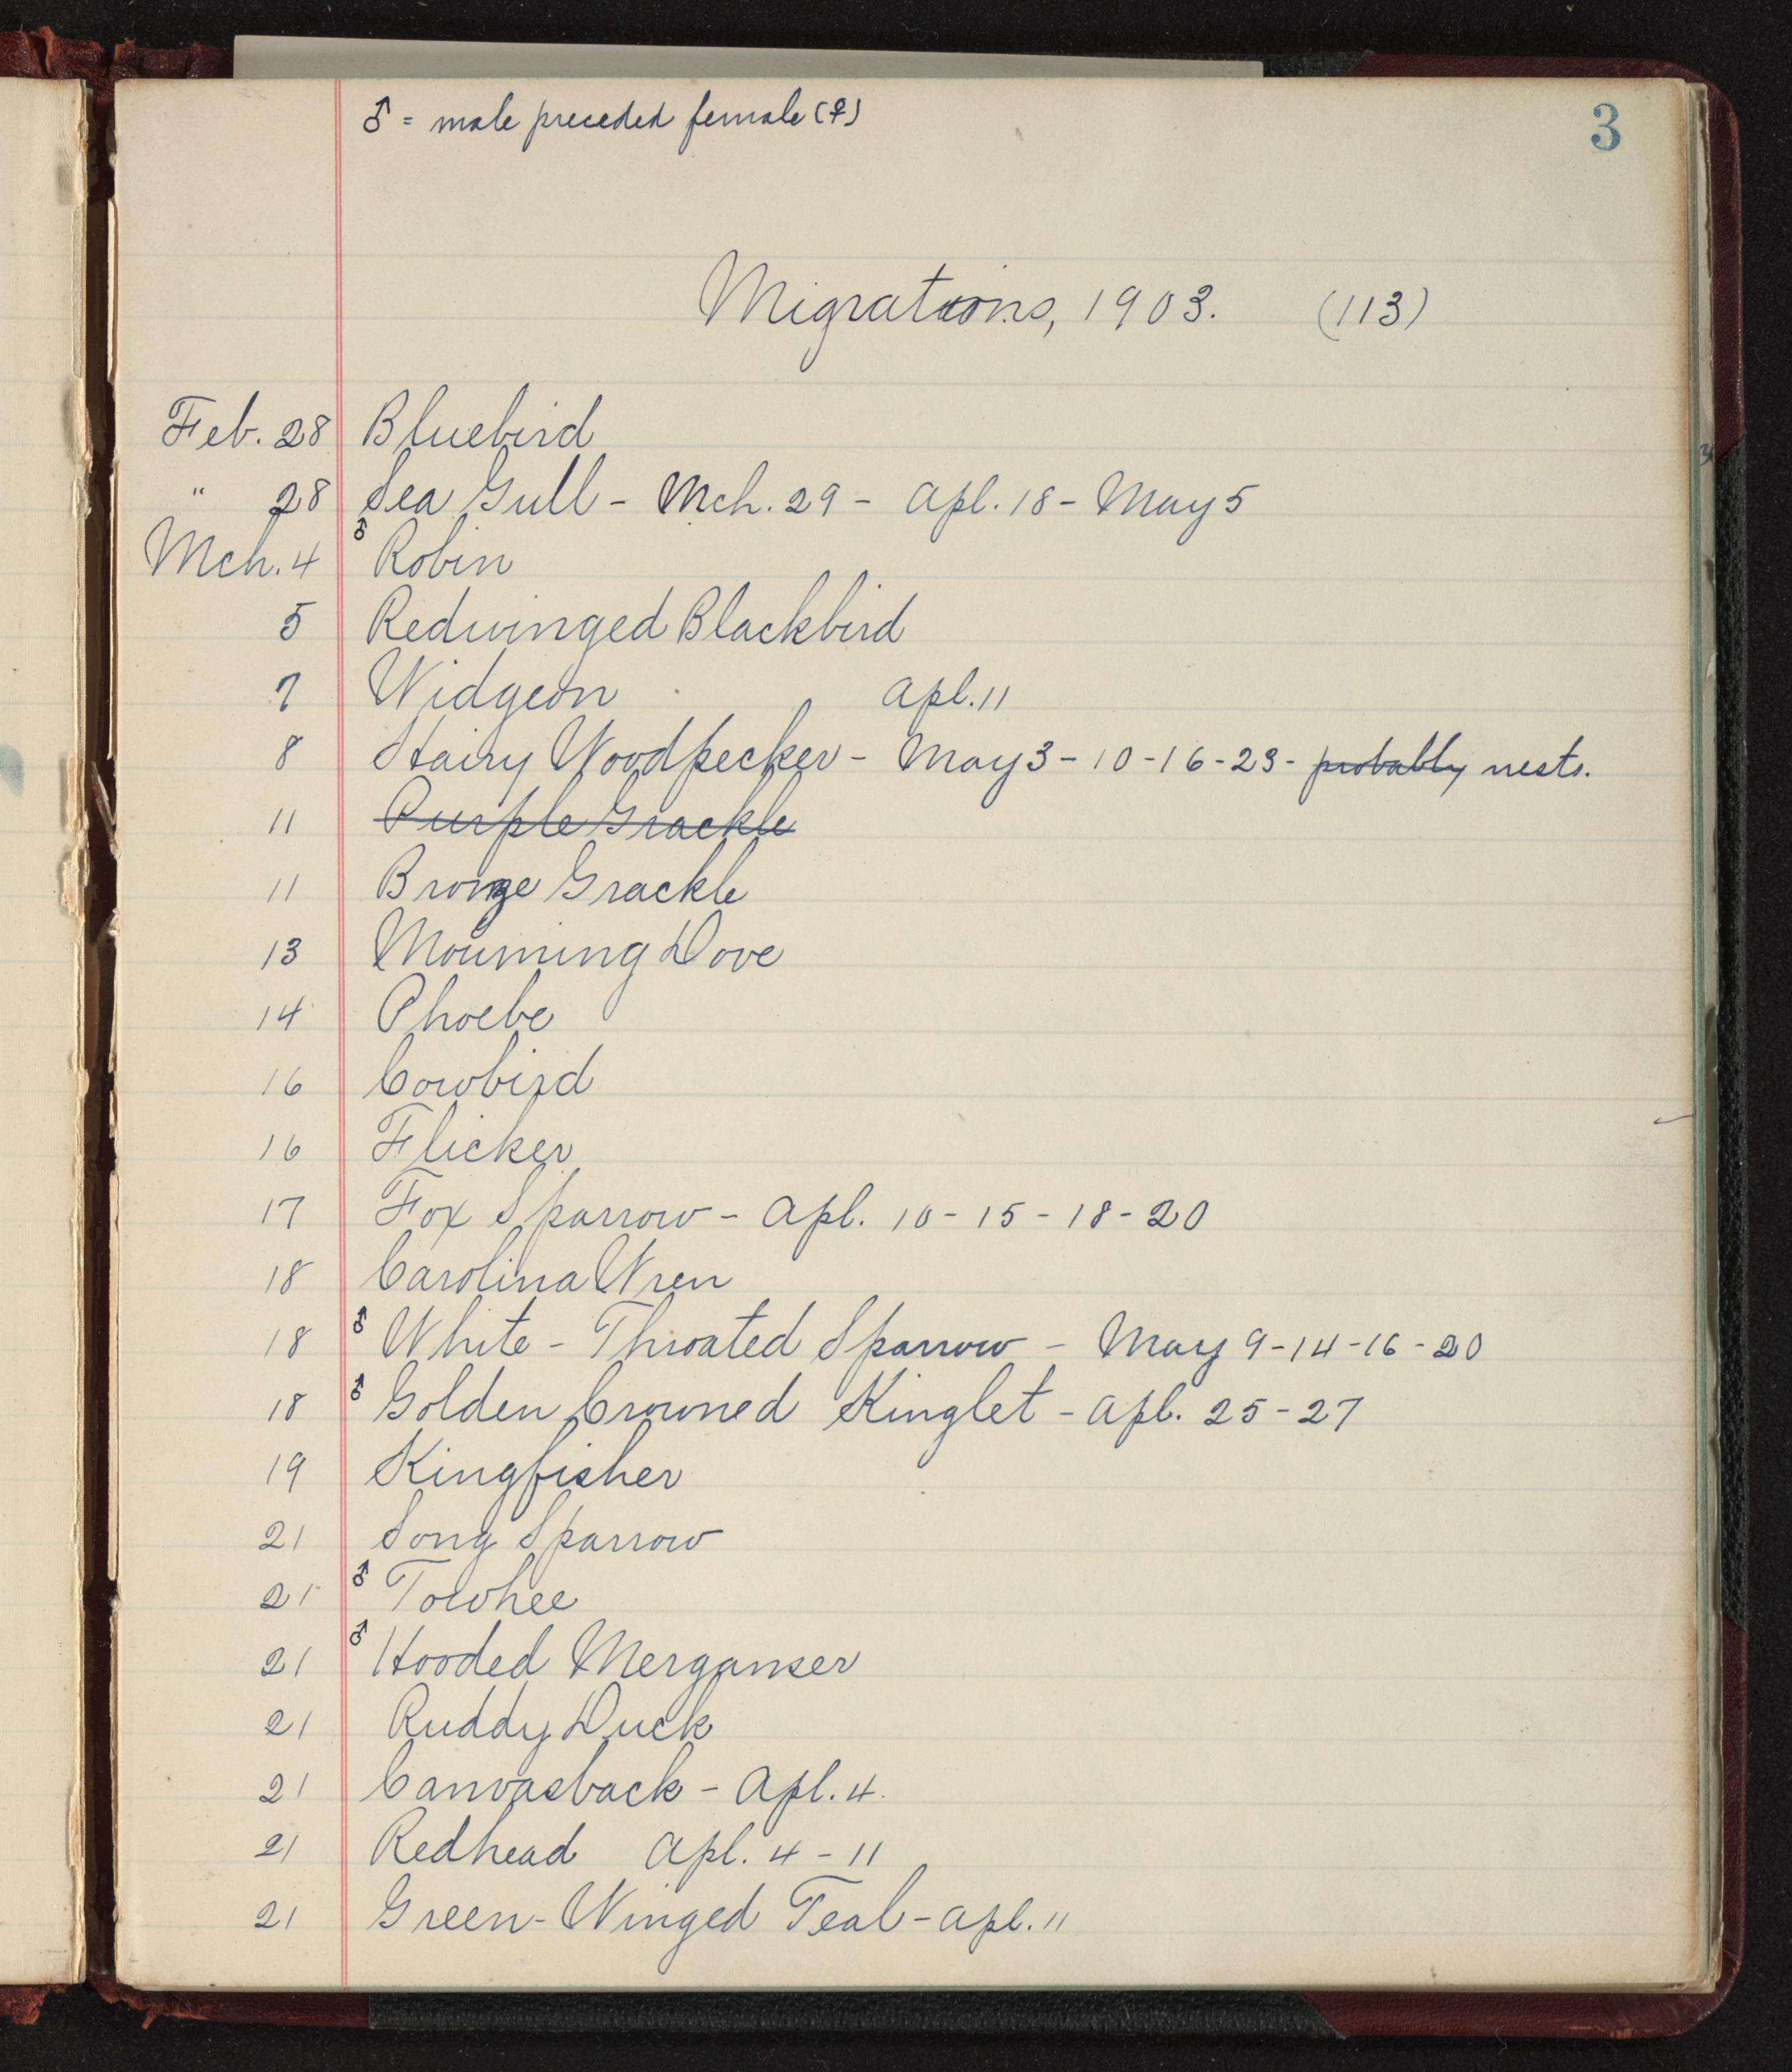 ♂ = male preceded female (♀)
3
Migrations, 1903. (113)
Feb. 28 Bluebird
" 28 Sea Gull - Mch. 29 - Apl. 18 - May 5
Mch. 4 ♂ Robin
5 Redwinged Blackbird
7 Widgeon Apl. 11
8 Hairy Woodpecker - May 3 - 10 - 16 - 23 - probably nests.
11 Purple Grackle
11 Bronze Grackle
13 Mourning Dove
14 Phoebe
16 Cowbird
16 Flicker
17 Fox Sparrow - Apl. 10 - 15 - 18 - 20
18 Carolina Wren
18 ♂ White - Throated Sparrow - May 9 - 14 - 16 - 20
18 ♂ Golden Crowned Kinglet - Apl. 25 - 27
19 Kingfisher
21 Song Sparrow
21 ♂ Towhee
21 ♂ Hooded Merganser
21 Ruddy Duck
21 Canvasback - Apl. 4.
21 Redhead Apl. 4 - 11
21 Green-Winged Teal - Apl. 11